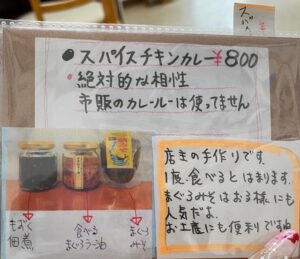 スパイ
● スパイスチキンカレー ¥800
● 絶対的な相性
市販のカレールーは使ってません
店主の手作りです。
1度食べるとはまります。
まぐろみそはお子様にも
人気だよ。
お土産にも便利ですね
もずく
佃煮
食べる
まぐろラー油
まぐろ
みそ